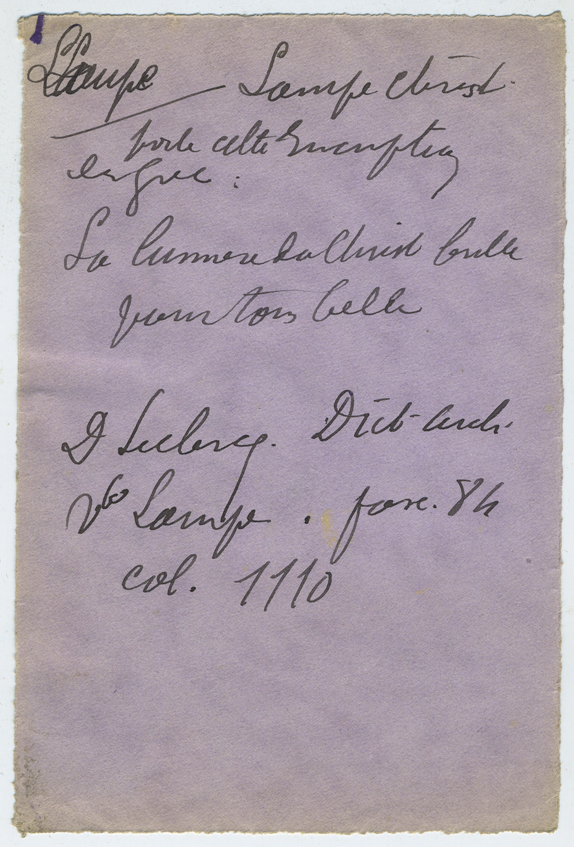 Lampe — Lampe Christ.
porte cette Inscription
en grec :
La lumiere du Christ brille
pour tous belle
D Leclercq. Dict. arch.
Vbo Lampe . fasc. 84
col. 1110